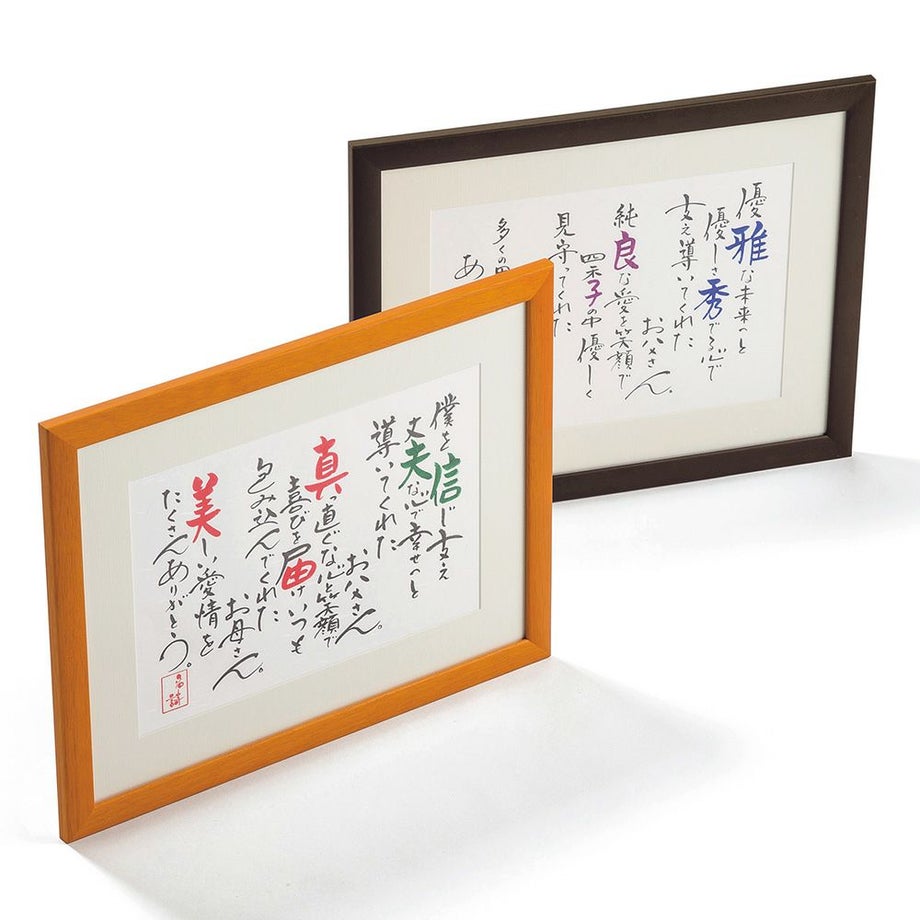 僕を信じ支え
丈夫な心で幸せへと
導いてくれた
お父さん。
真っ直ぐな心と笑顔で
喜びを届けいつも
包み込んでくれた
お母さん。
美しい愛情を
たくさんありがとう。
優雅な未来へと
優しさ秀でる心で
支え導いてくれた
お父さん。
純良な愛を笑顔で
子の中優しく
見守ってくれた
多くの
あ